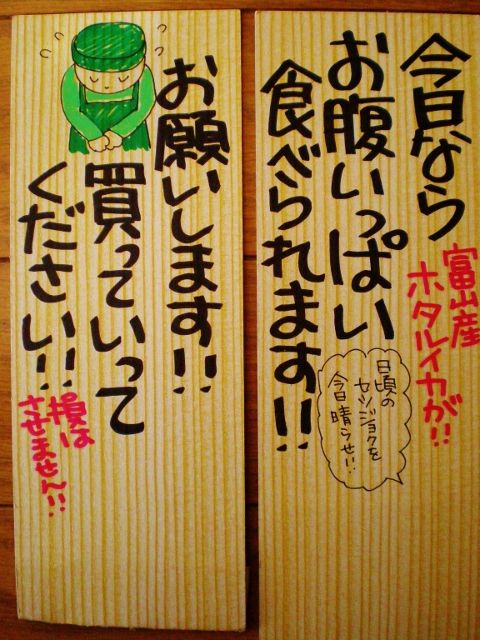 今日なら
富山産
ホタルイカが!!
お腹いっぱい
食べられます!!
日頃の
セツジョクを
今日晴らせい!!
お願いします!!
買っていって
ください!!
損は
させません!!